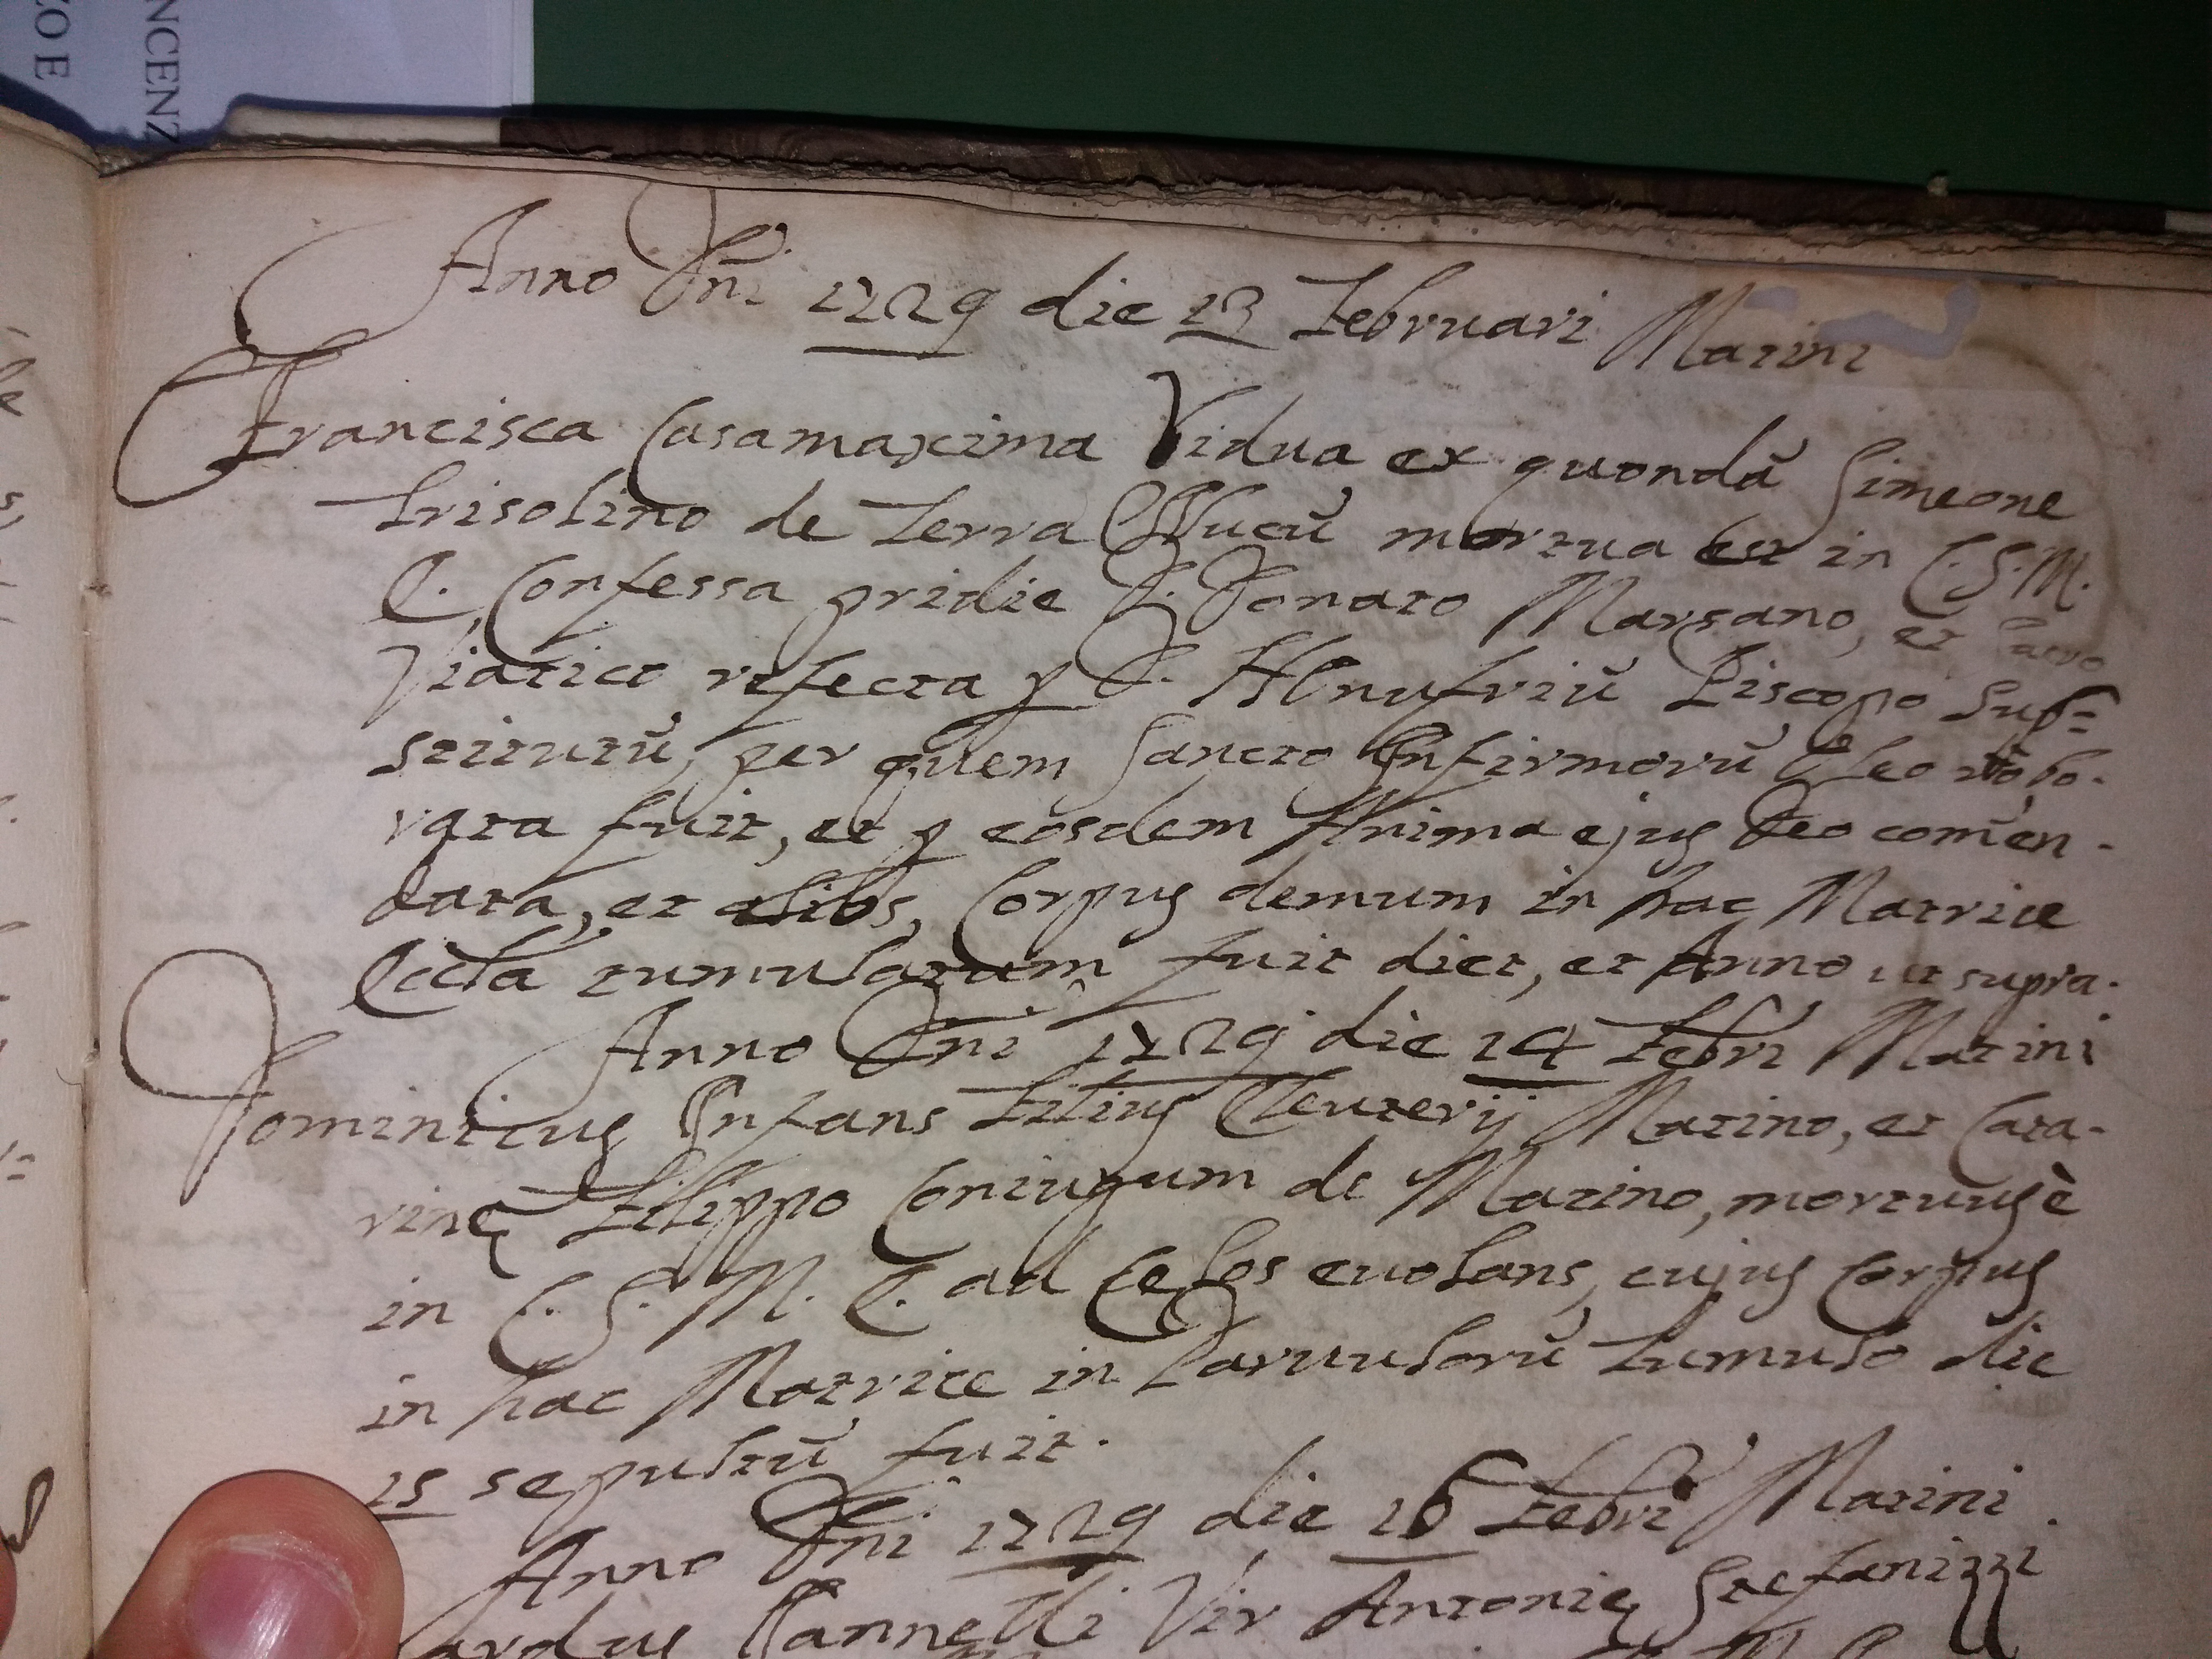 NCENZ
ZO E
Anno Dñi 1729 die 13 Februari Matini
Francisca Casamaxima Vidua ex quondā Simeone
Trisolino de Terra mortua est in C. S. M.
E. Confessa pridie D. Donato Marsano, et Sacro
Viatico refecta p D. HOnufriū Piscopo Sub=
stitutū, per quem Sancto Infirmorū Oleo robo-
rata fuit, et p eosdem Anima ejus Deo comen-
data, et alibs, Corpus demum in hac Matrice
Eccla tumulatum fuit diet, et Anno ut supra.
Anno Dñi 1729 die 14 Febri Matini
Dominicus Infans Filius Eleuterij Matino, et Cata-
rinę Filippo Coniugum de Matino, mortuus è
in C. S. M. E. ad Celos evolans, cujus Corpus
in hac Matrice in Parvulorū Tumulo die
15 sepultū fuit.
Anno Dñi 1729 die 16 Febri Matini.
Iannelli Vir Antonię Stefanizzi